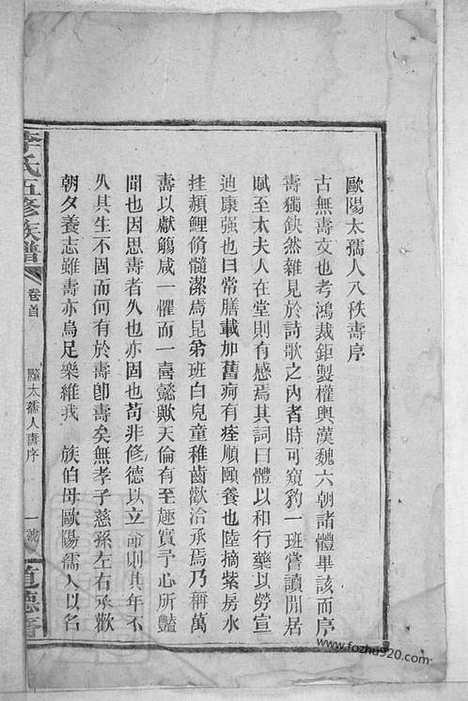 歐陽太孺人八秩壽序
古無壽文也考鴻裁鉅製權輿漢魏六朝諸體畢該而序
壽獨缺然雜見於詩歌之內者時可窺豹一班嘗讀閒居
賦至太夫人在堂則有感焉其詞曰體以和行藥以勞宣
迪康强也曰常膳載加舊痾有痊順頤養也陸摘紫房水
挂頳鯉脩髓潔焉昆弟班白兒童稚齒歡洽承焉乃稱萬
壽以獻觴咸一懼而一喜懿歟天倫有至趣實予心所豔
聞也因思壽者久也亦固也苟非修德以立命則其年不
久其生不固而何有於壽卽壽矣無孝子慈孫左右承歡
朝夕養志雖壽亦烏足樂維我　族伯母歐陽孺人以名
李氏五修族譜
卷首
太孺人壽序
一
道德堂
www.fozhu920.com